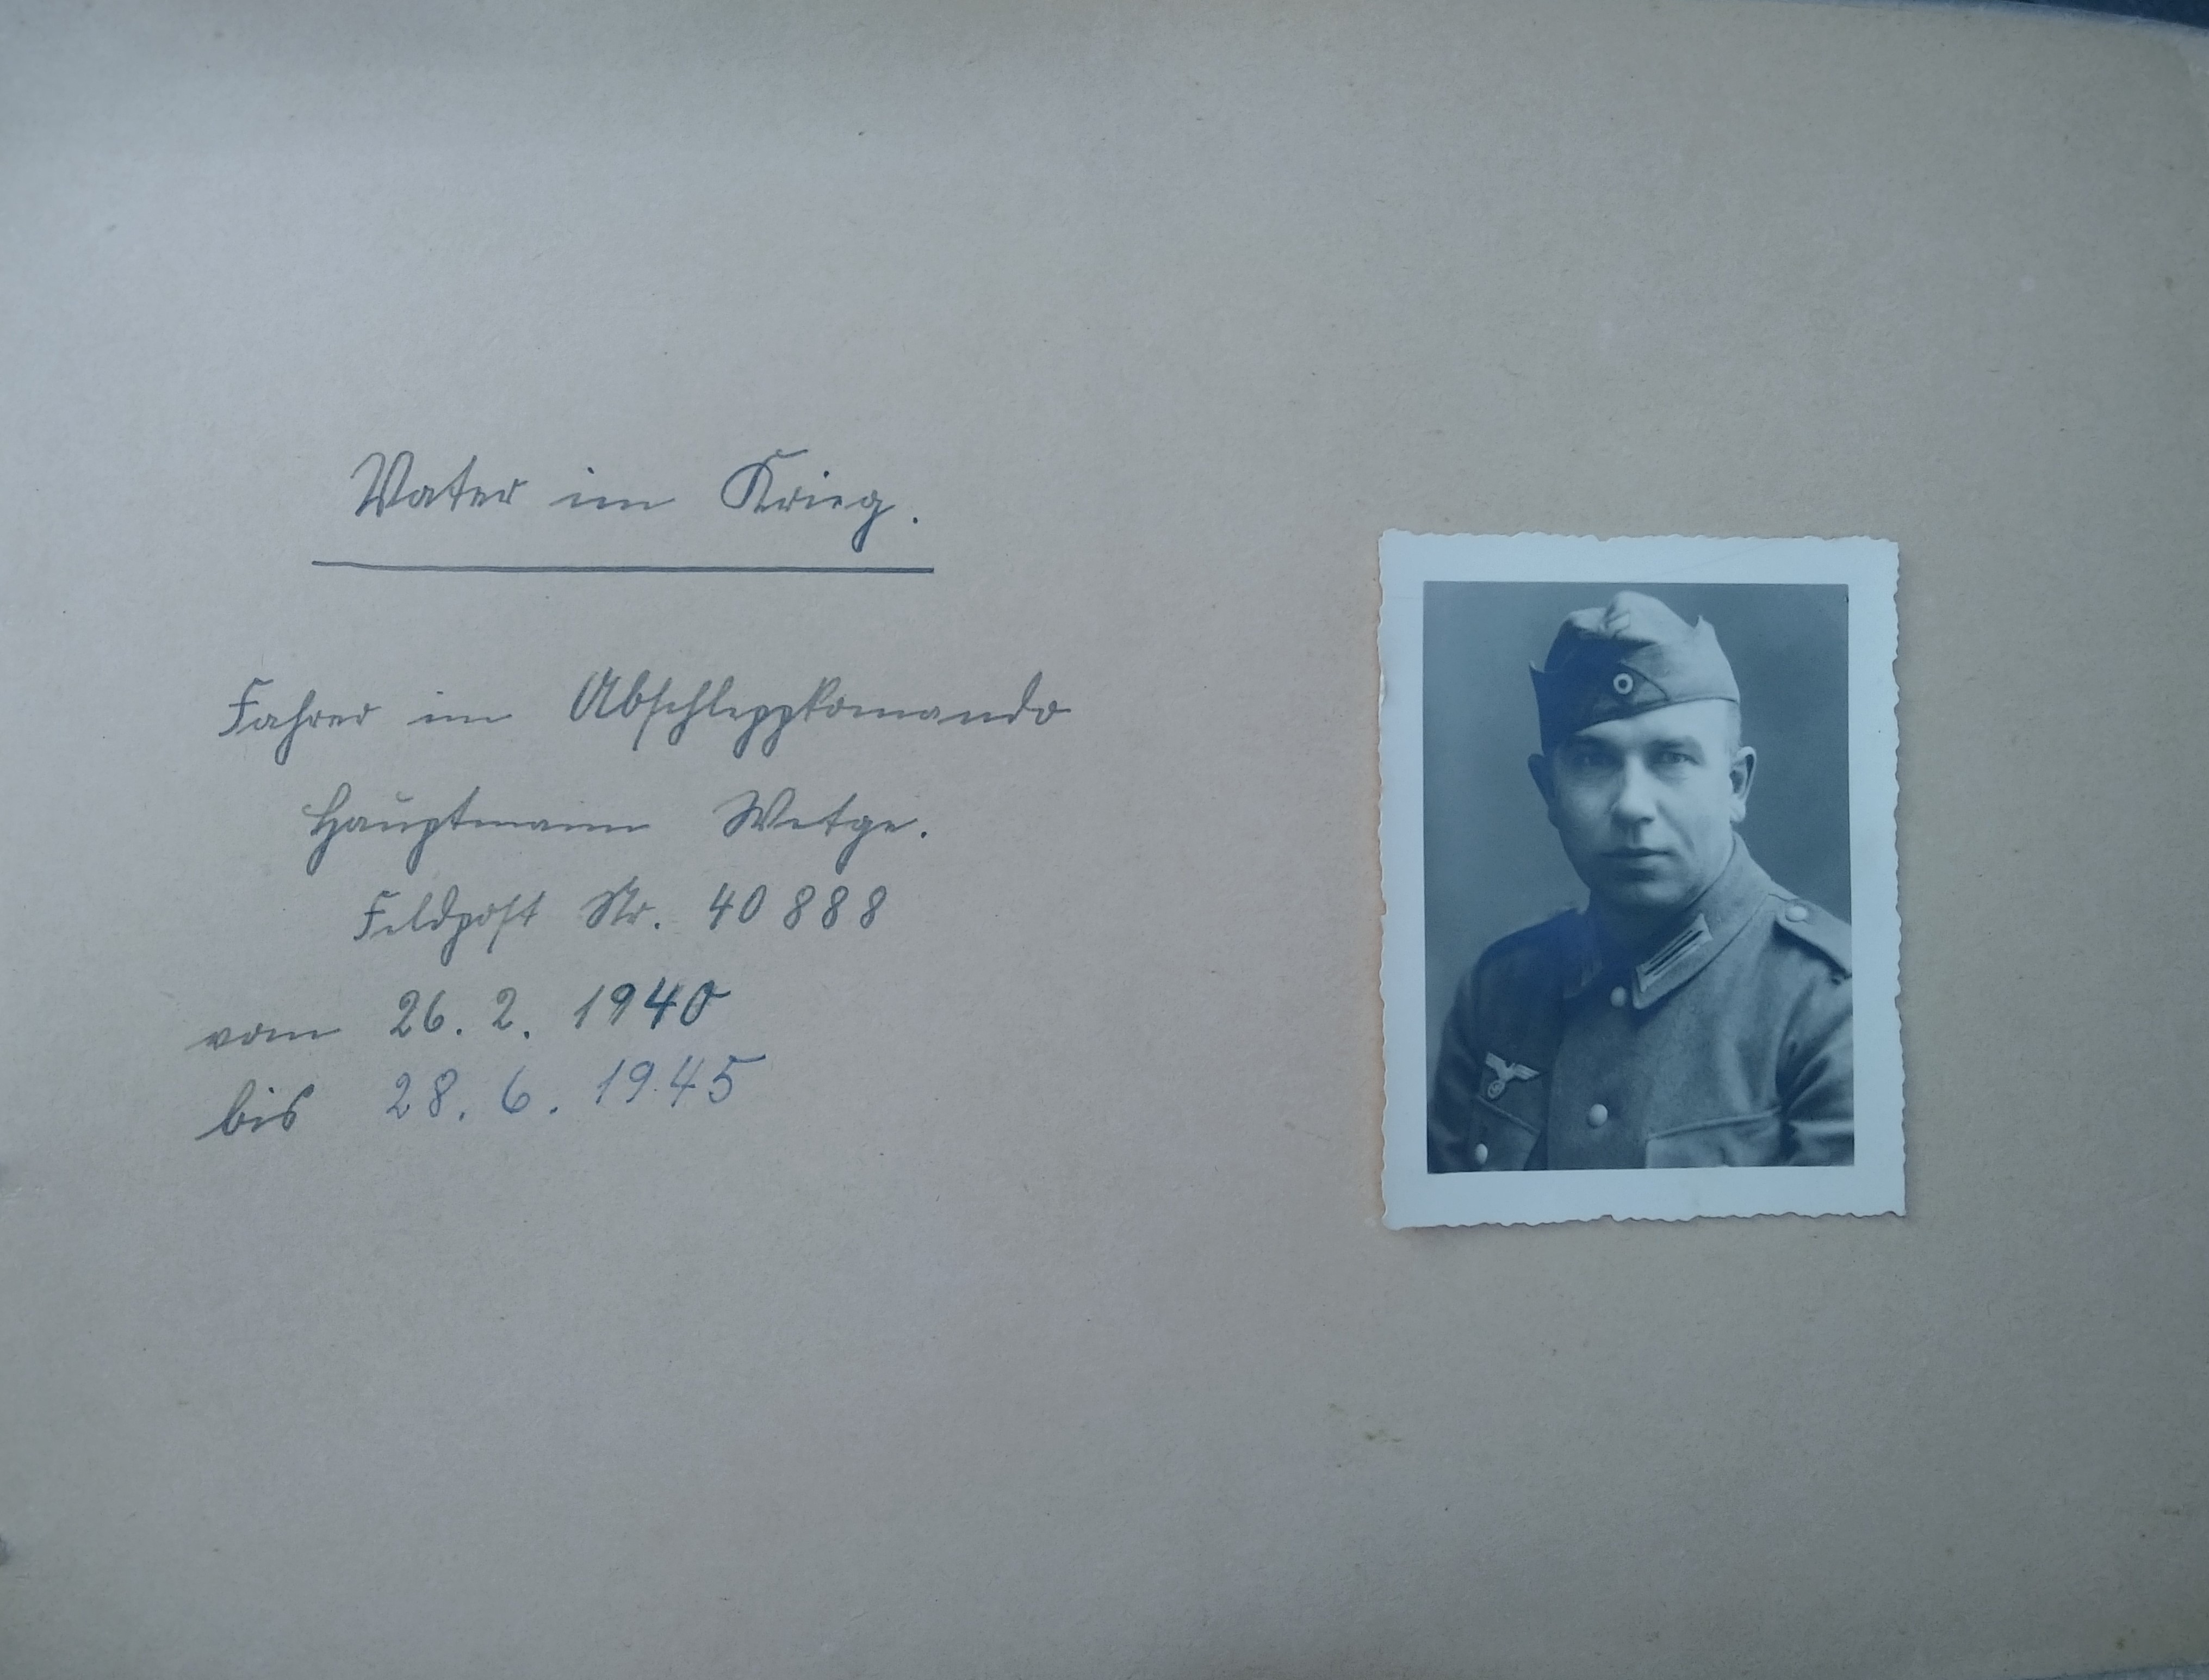 Vater im Krieg.
Fahrer im Abschleppkomando
Hauptmann Wetge.
Feldpost Nr. 40888
vom 26. 2. 1940
bis 28. 6. 1945